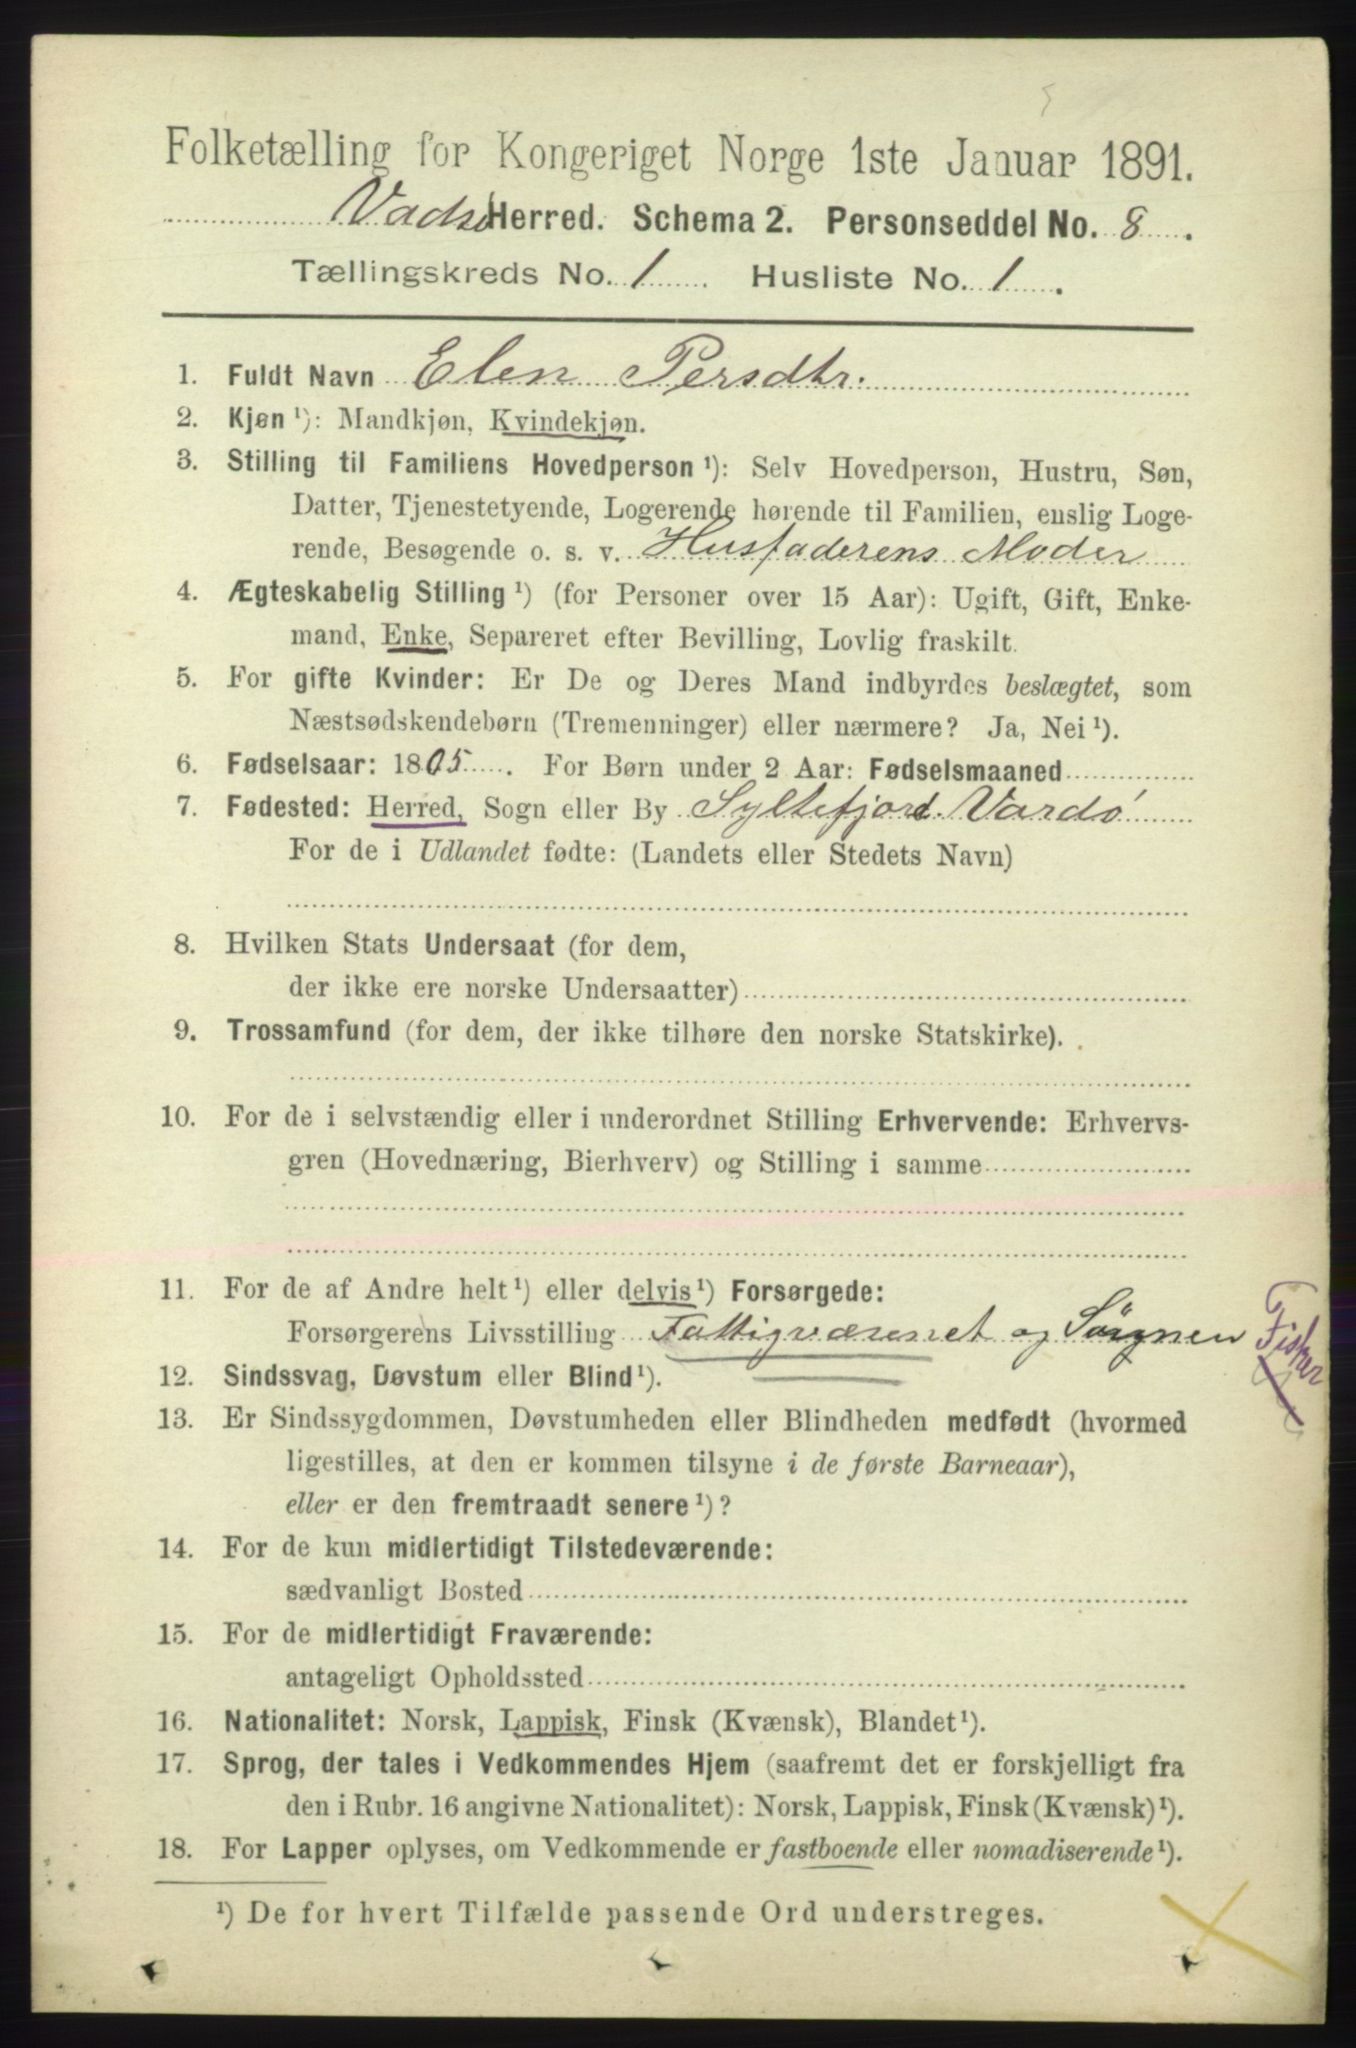 Folketælling for Kongeriget Norge 1ste Januar 1891.
Vadsø Herred. Schema 2. Personseddel No. 8.
Tællingskreds No. 1 Husliste No. 1.
1. Fuldt Navn Elen Persdtr.
2. Kjøn ¹): Mandkjøn, Kvindekjøn.
3. Stilling til Familiens Hovedperson ¹): Selv Hovedperson, Hustru, Søn,
Datter, Tjenestetyende, Logerende hørende til Familien, enslig Loge-
rende, Besøgende o. s. v. Husfaderens Moder
4. Ægteskabelig Stilling ¹) (for Personer over 15 Aar): Ugift, Gift, Enke-
mand, Enke, Separeret efter Bevilling, Lovlig fraskilt.
5. For gifte Kvinder: Er De og Deres Mand indbyrdes beslægtet, som
Næstsødskendebørn (Tremenninger) eller nærmere? Ja, Nei ¹).
6. Fødselsaar: 1805. For Børn under 2 Aar: Fødselsmaaned
7. Fødested: Herred, Sogn eller By Syltefjord. Vardø
For de i Udlandet fødte: (Landets eller Stedets Navn)
8. Hvilken Stats Undersaat (for dem,
der ikke ere norske Undersaatter)
9. Trossamfund (for dem, der ikke tilhøre den norske Statskirke).
10. For de i selvstændig eller i underordnet Stilling Erhvervende: Erhvervs-
gren (Hovednæring, Bierhverv) og Stilling i samme
11. For de af Andre helt ¹) eller delvis ¹) Forsørgede:
Forsørgerens Livsstilling Fattigvæsenet og Sönnen Fisker
12. Sindssvag, Døvstum eller Blind ¹).
13. Er Sindssygdommen, Døvstumheden eller Blindheden medfødt (hvormed
ligestilles, at den er kommen tilsyne i de første Barneaar),
eller er den fremtraadt senere ¹)?
14. For de kun midlertidigt Tilstedeværende:
sædvanligt Bosted
15. For de midlertidigt Fraværende:
antageligt Opholdssted
16. Nationalitet: Norsk, Lappisk, Finsk (Kvænsk), Blandet ¹).
17. Sprog, der tales i Vedkommendes Hjem (saafremt det er forskjelligt fra
den i Rubr. 16 angivne Nationalitet): Norsk, Lappisk, Finsk (Kvænsk) ¹).
18. For Lapper oplyses, om Vedkommende er fastboende eller nomadiserende ¹).
¹) De for hvert Tilfælde passende Ord understreges.